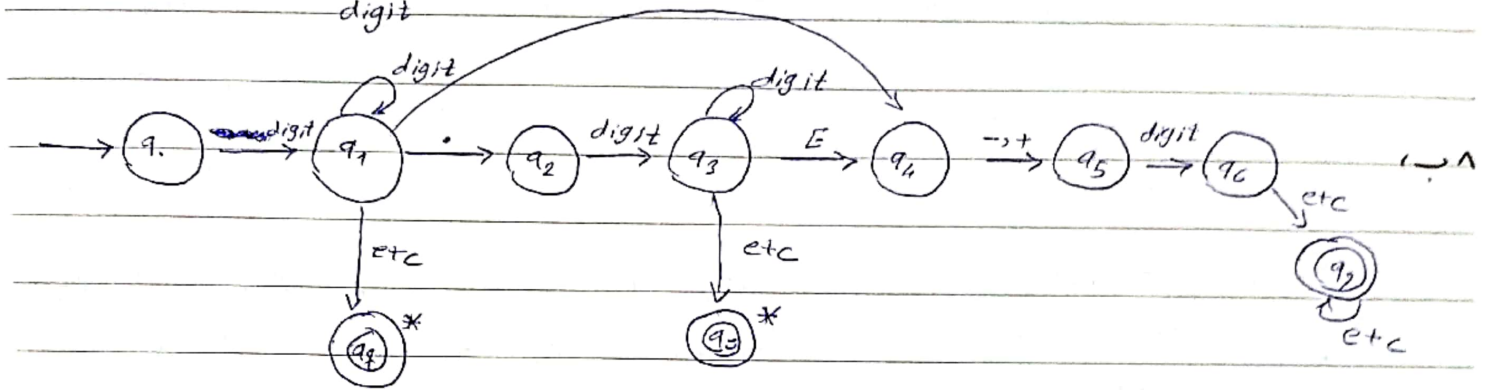 digit
digit
digit
q. digit q1 . q2 digit q3 E q4 -,+ q5 digit q6 ۸ ب)
etc
etc
etc
q8 *
*
etc